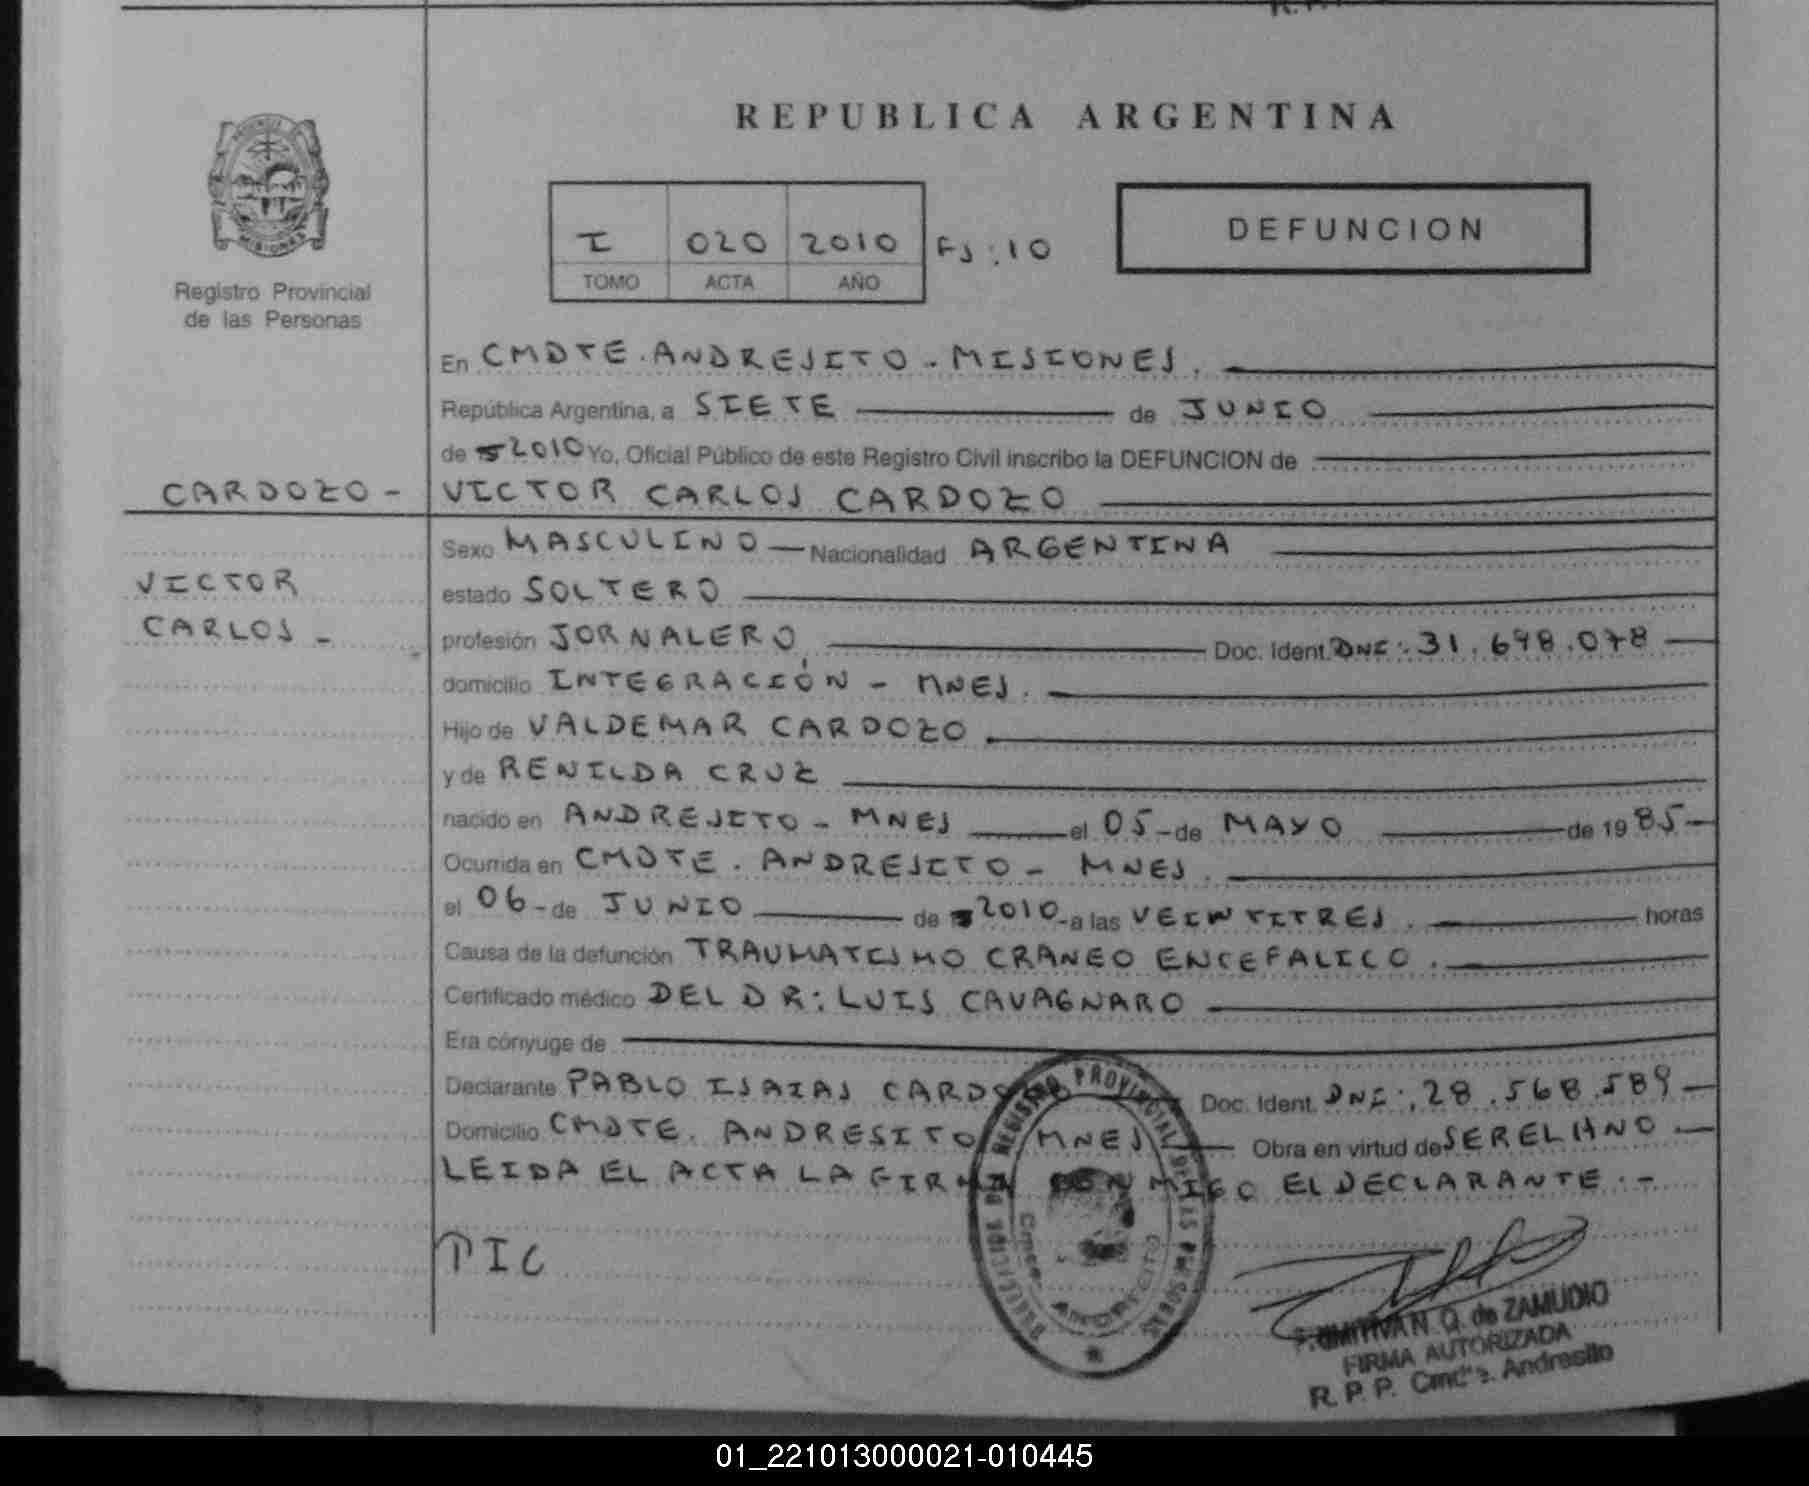 REPUBLICA ARGENTINA
MISIONES
Registro Provincial
de las Personas
I 020 2010 FJ:10
TOMO ACTA AÑO
DEFUNCION
En CMDTE. ANDRESITO - MISIONES.
República Argentina, a SIETE de JUNIO
de 2010 Yo, Oficial Público de este Registro Civil inscribo la DEFUNCION de
CARDOZO - VICTOR CARLOS CARDOZO
VICTOR
CARLOS -
Sexo MASCULINO Nacionalidad ARGENTINA
estado SOLTERO
profesión JORNALERO Doc. Ident. DNI: 31.698.078
domicilio INTEGRACIÓN - MNES.
Hijo de VALDEMAR CARDOZO
y de RENILDA CRUZ
nacido en ANDRESITO - MNES el 05 - de MAYO de 1985 -
Ocurrida en CMDTE. ANDRESITO - MNES.
el 06 - de JUNIO de 2010 - a las VEINTITRES. horas
Causa de la defunción TRAUMATISMO CRANEO ENCEFALICO.
Certificado médico DEL DR: LUIS CAVAGNARO
Era cónyuge de
Declarante PABLO ISAIAS CARDOZO Doc. Ident. DNI: 28.568.589 -
Domicilio CMDTE. ANDRESITO MNES Obra en virtud de SER EL HNO -
LEIDA EL ACTA LA FIRMA CONMIGO EL DECLARANTE. -
PIC
REGISTRO PROVINCIAL DE LAS PERSONAS
N. Q. de ZAMUDIO
FIRMA AUTORIZADA
R. P. P. Cmdte. Andresito
01_221013000021-010445